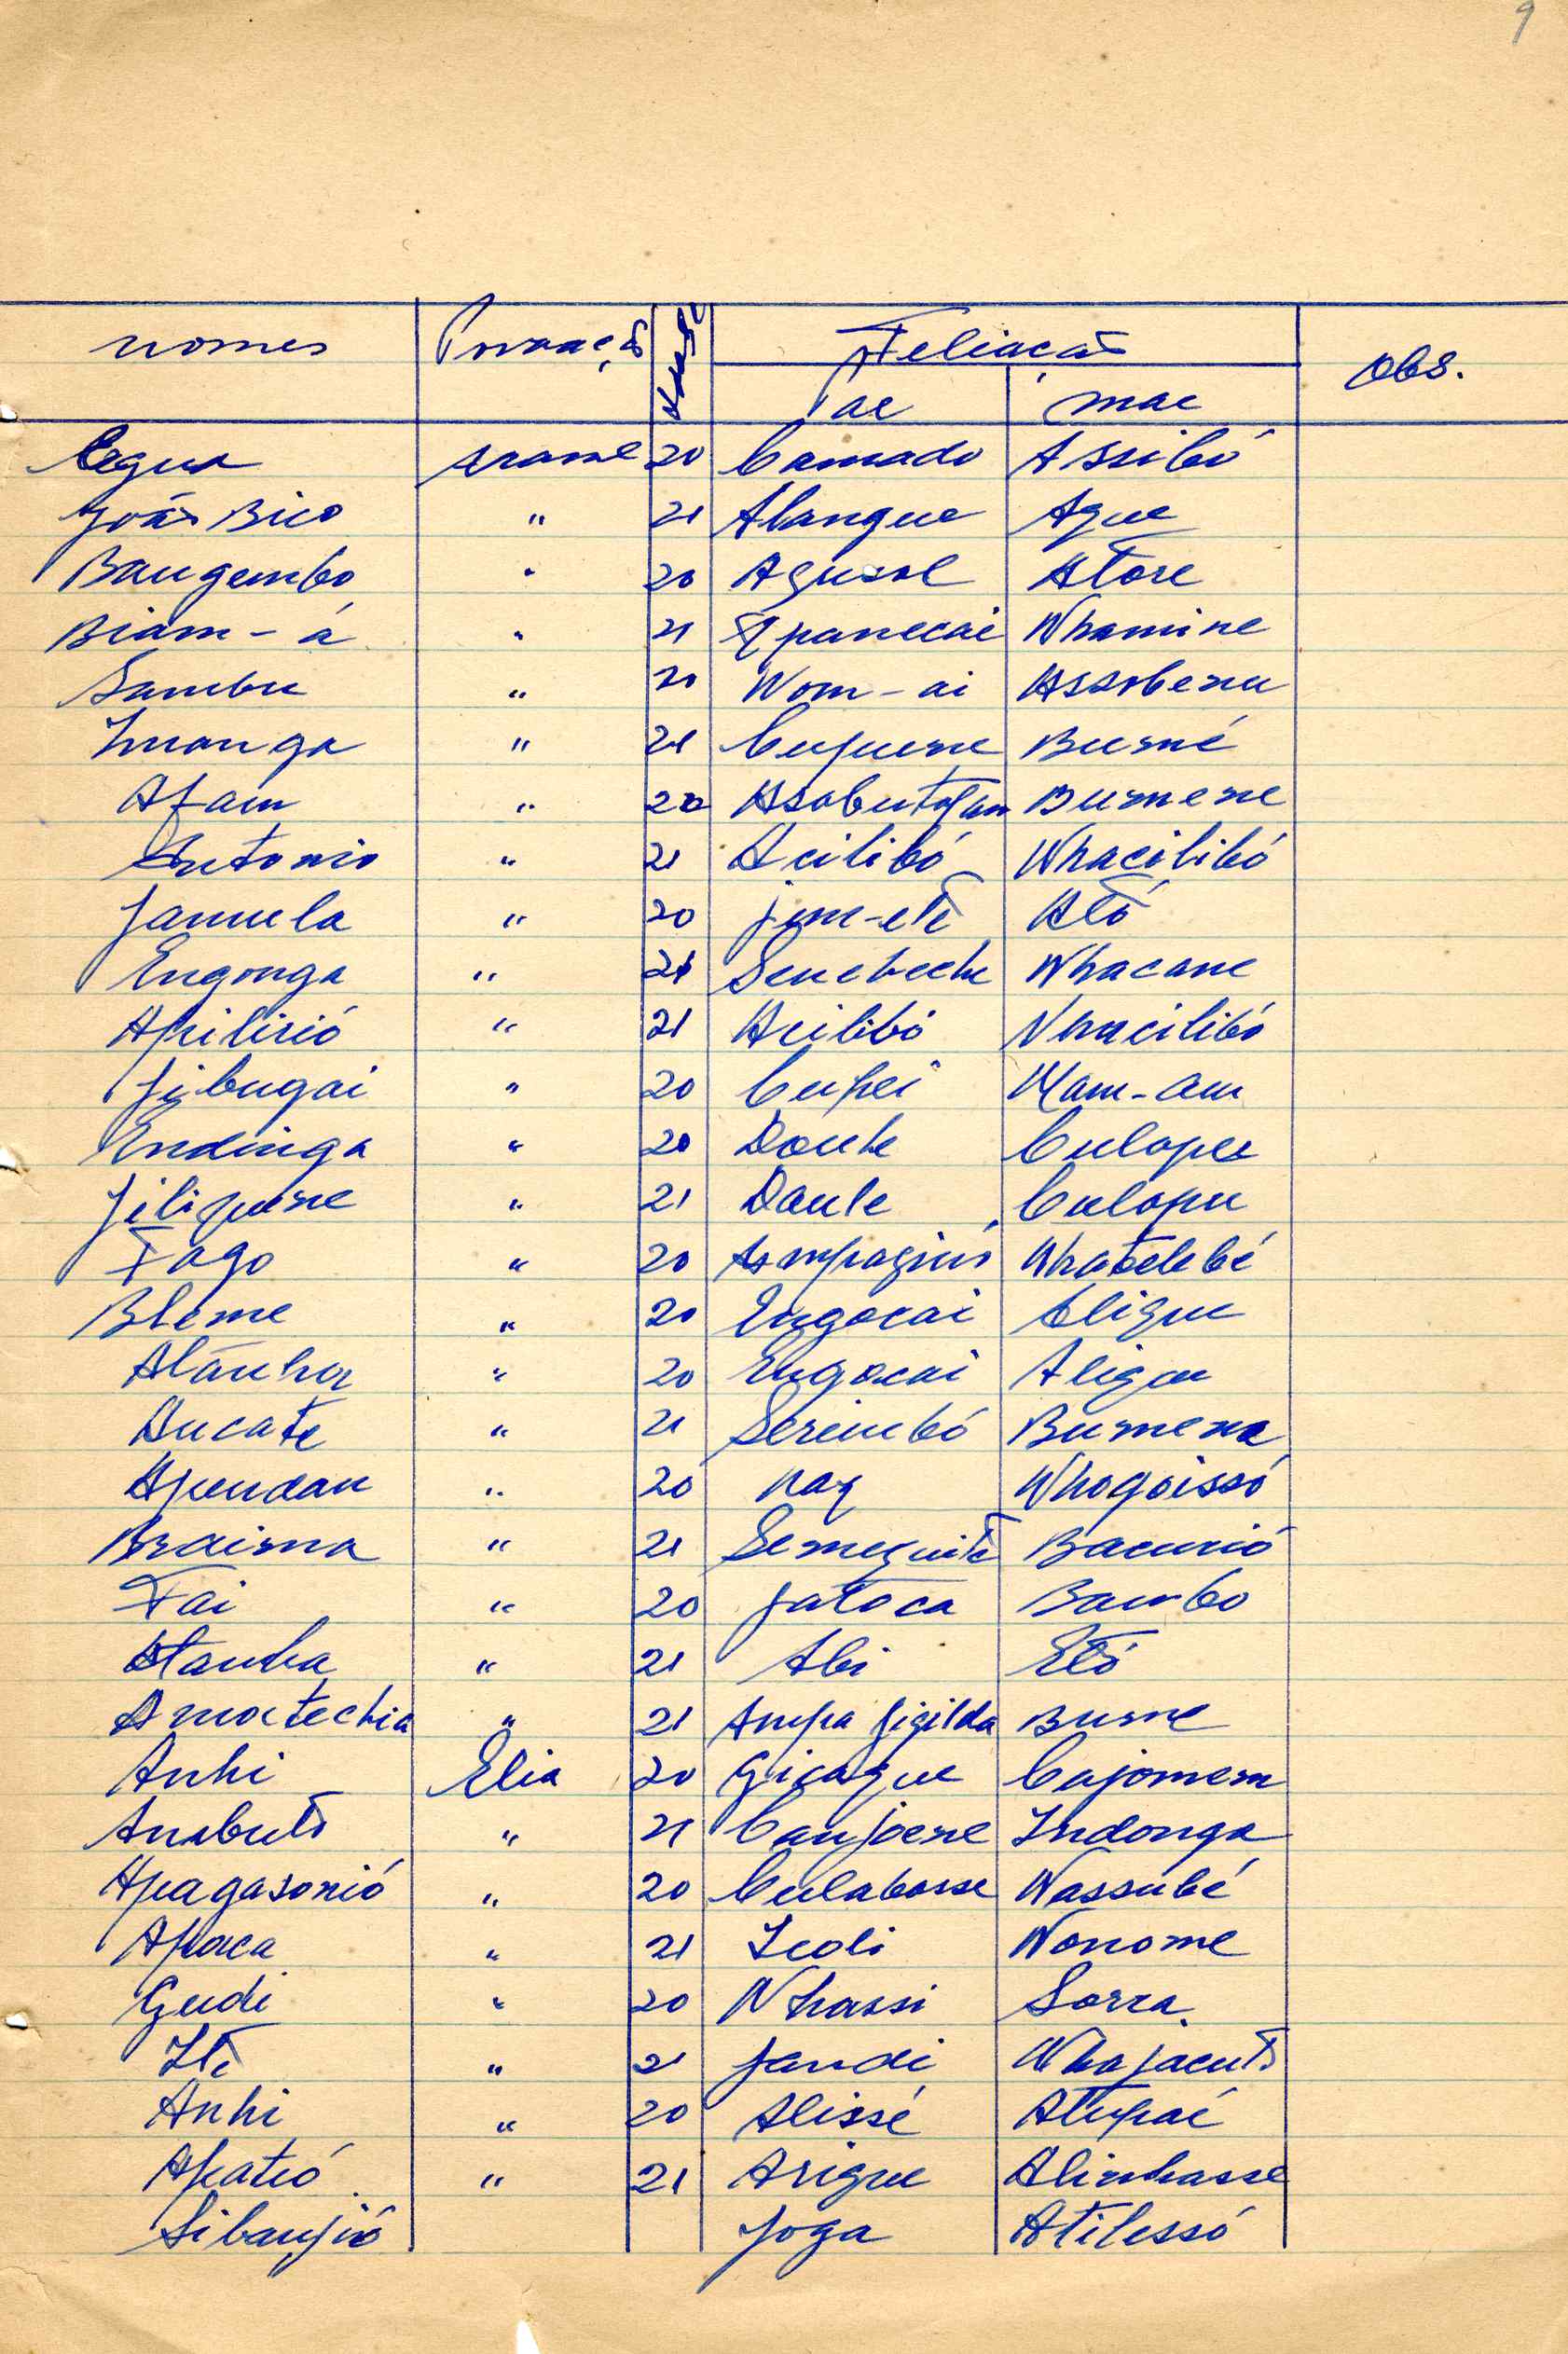 9
nomes Povoação Feliação Obs.
Pae mae
Cegua arame 20 Camado Assibó
João Bico " 21 Abangue Ague
Baugembo " 20 Agusol Atore
Biam-á " 21 Epanecai Nhamine
Sambu " 20 Nom-ai Assobenu
Inanga " 21 Cupuene Busné
Afam " 20 Burnene
Antonio " 21 Acilibó Nhacilibó
Jamuela " 20 jum-eté Ató
Engonga " 21 Nhacane
Apilisió " 21 Acilibó Nhacilibó
Jibugai " 20 Cupei Mam-am
Endinga " 20 Daule Culopu
Jiliquene " 21 Daule Culopu
Fago " 20 Ampagiús Nhatelebé
Bleme " 20 Engocai Aligue
Atanha " 20 Engocai Aligue
Ducate " 21 Sereimbó Burnena
Apendau " 20 Naq Nhogoissó
Braima " 21 Semeguité Bacurió
Fai " 20 Jatoca Bambo
Atanha " 21 Abi Etó
Amatechia " 21 Ampa Jigilda Busne
Anhi Elia 20 Gicague Cajomem
Anabutó " 21 Canjoene Indonga
Apagasonió " 20 Culabosse Nassubé
Apaca " 21 Iedi Nonome
Gudi " 20 Nhassi Sorra
Ité " 21 Jandi Nhajacutó
Anhi " 20 Alissé Atupaé
Apatió " 21 Arigue Alinhasse
Sibaujió Joga Atilessó